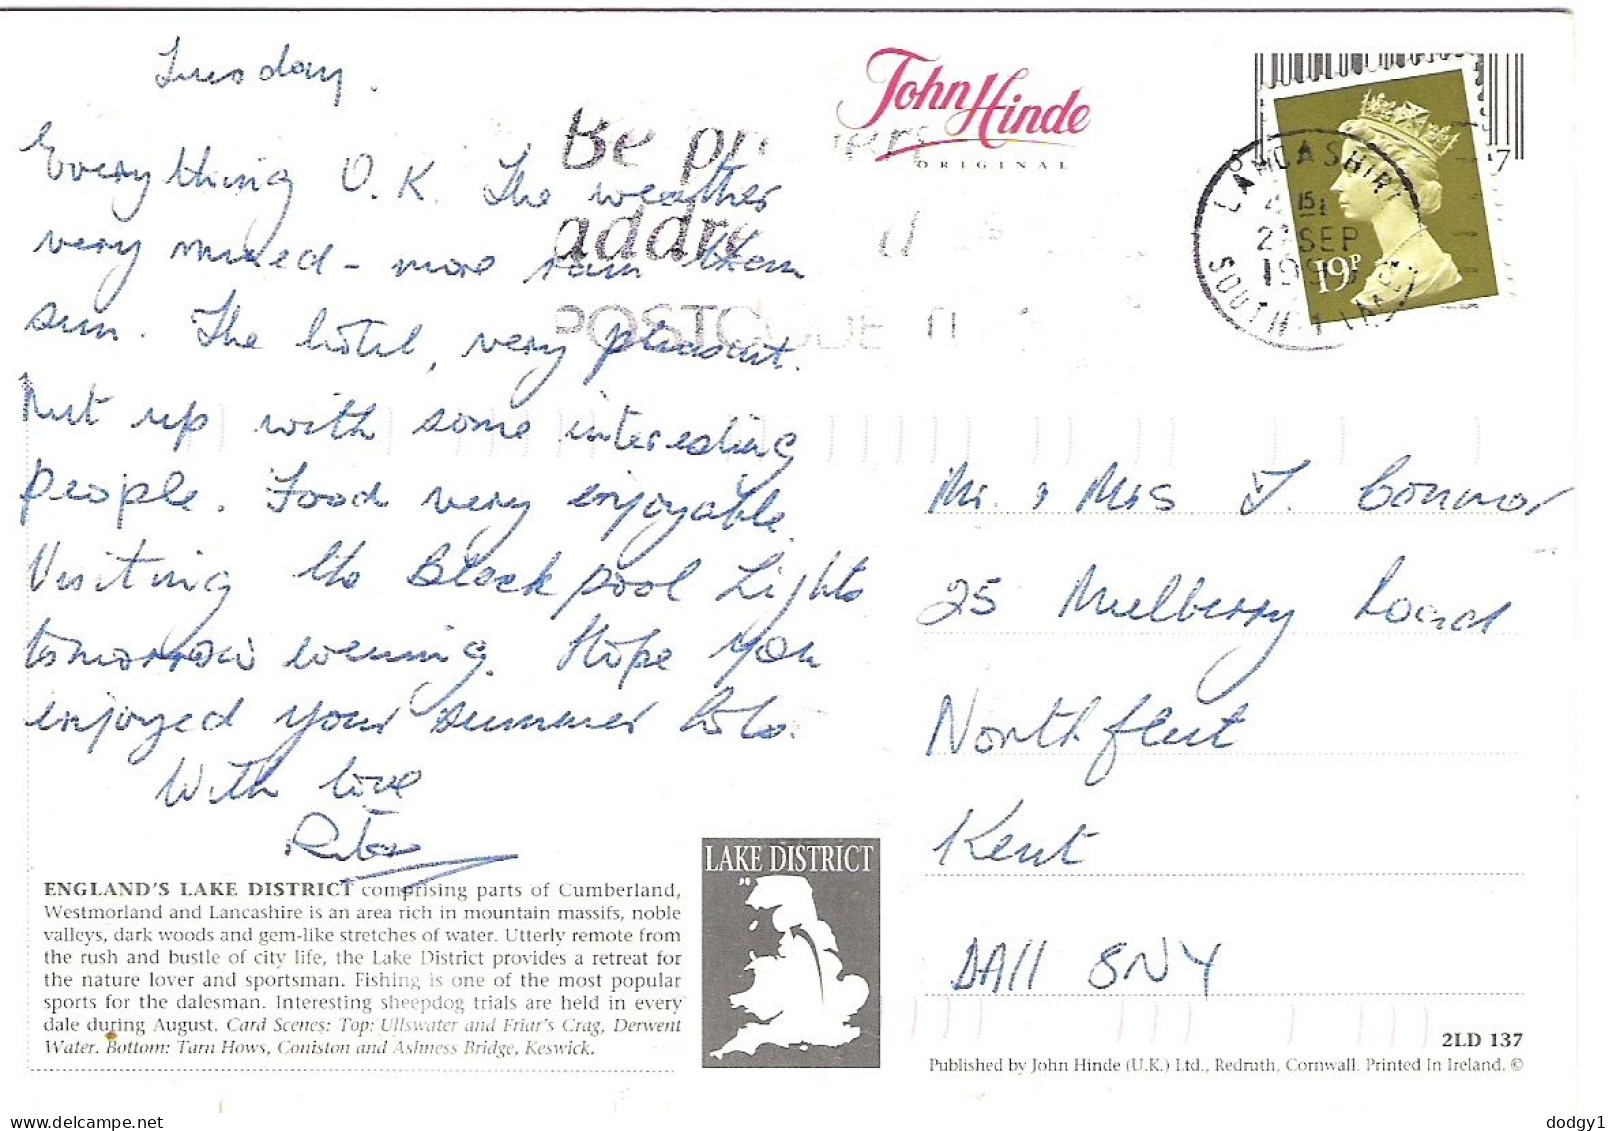 Tuesday.
Everything O.K. The weather
very mixed - more rain than
sun. The hotel, very pleasant.
Met up with some interesting
people. Food very enjoyable.
Visiting the Blackpool Lights
tomorrow evening. Hope you
enjoyed your summer hols.
With love
Rita
ENGLAND'S LAKE DISTRICT comprising parts of Cumberland,
Westmorland and Lancashire is an area rich in mountain massifs, noble
valleys, dark woods and gem-like stretches of water. Utterly remote from
the rush and bustle of city life, the Lake District provides a retreat for
the nature lover and sportsman. Fishing is one of the most popular
sports for the dalesman. Interesting sheepdog trials are held in every
dale during August. Card Scenes: Top: Ullswater and Friar's Crag, Derwent
Water. Bottom: Tarn Hows, Coniston and Ashness Bridge, Keswick.
LAKE DISTRICT
John Hinde
ORIGINAL
Be
POSTCODE
LANCASHIRE
SEP
SOUTH
19P
Mr. & Mrs J. Connor
25 Mulberry Road
Northfleet
Kent
DA11 8NY
2LD 137
Published by John Hinde (U.K.) Ltd., Redruth, Cornwall. Printed In Ireland. ©
dodgy1